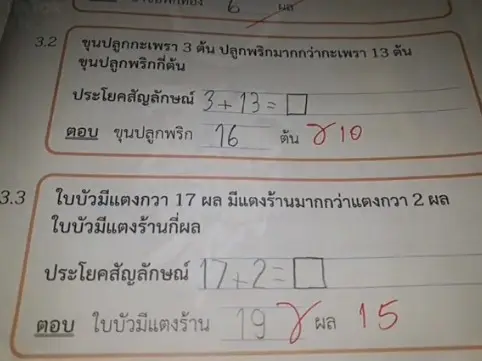 6 ผล
3.2 ขุนปลูกกะเพรา 3 ต้น ปลูกพริกมากกว่ากะเพรา 13 ต้น
ขุนปลูกพริกกี่ต้น
ประโยคสัญลักษณ์ 3+13=□
ตอบ ขุนปลูกพริก 16 ต้น 10
3.3 ใบบัวมีแตงกวา 17 ผล มีแตงร้านมากกว่าแตงกวา 2 ผล
ใบบัวมีแตงร้านกี่ผล
ประโยคสัญลักษณ์ 17+2=□
ตอบ ใบบัวมีแตงร้าน 19 ผล 15